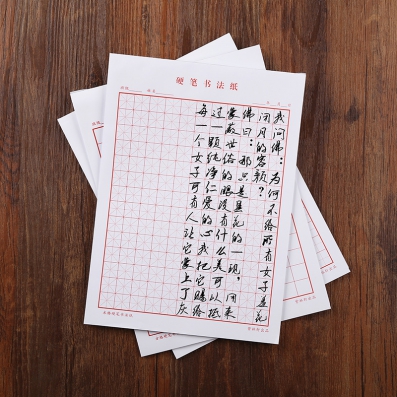 硬笔书法纸
我问佛：为何不给所有女子羞花
闭月的容颜？
佛曰：那只是昙花的一现，用来
蒙蔽世俗的眼没有什么美可以抵
过一颗纯净仁爱的心我把它赐给
每一个女子可有人让它蒙上了灰